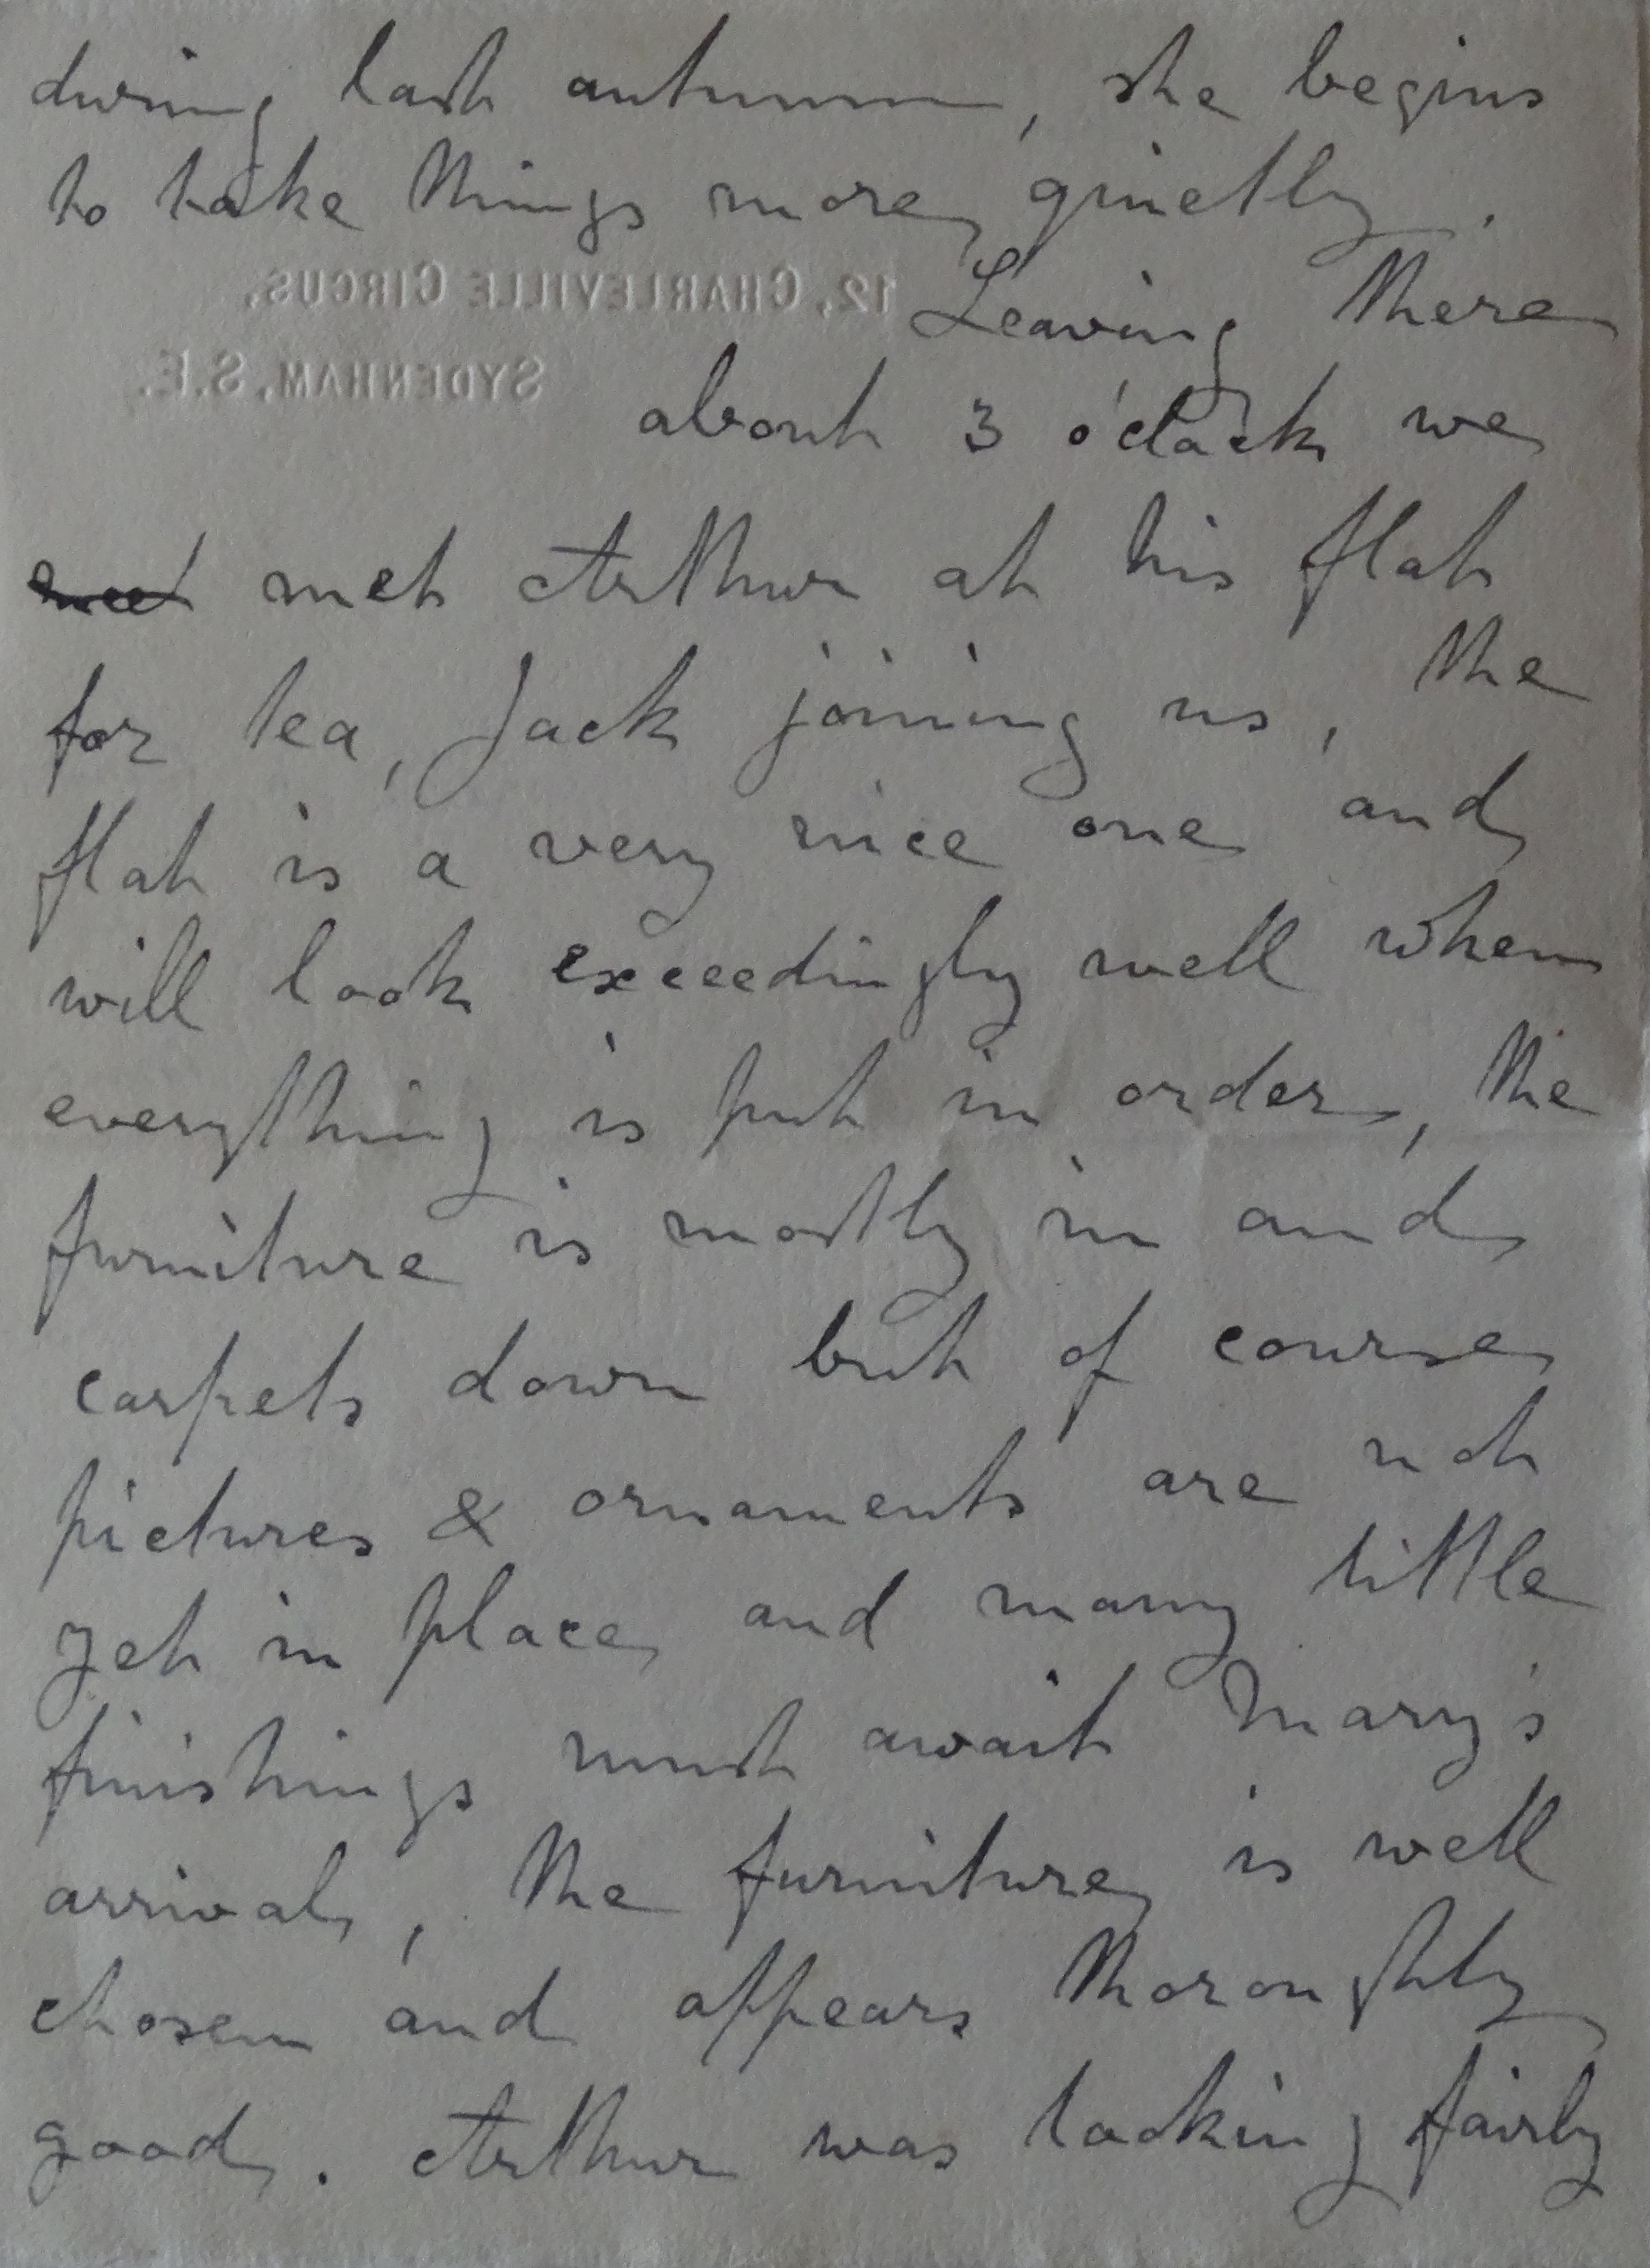 during last autumn, she begins
to take things more quietly.
12, CHARLEVILLE CIRCUS,
SYDENHAM, S.E.
Leaving there
about 3 o'clock we
meet met Arthur at his flat
for tea, Jack joining us, the
flat is a very nice one and
will look exceedingly well when
everything is put in order, the
furniture is mostly in and
carpets down but of course
pictures & ornaments are not
yet in place and many little
finishings must await Mary's
arrival, the furniture is well
chosen and appears thoroughly
good. Arthur was looking fairly